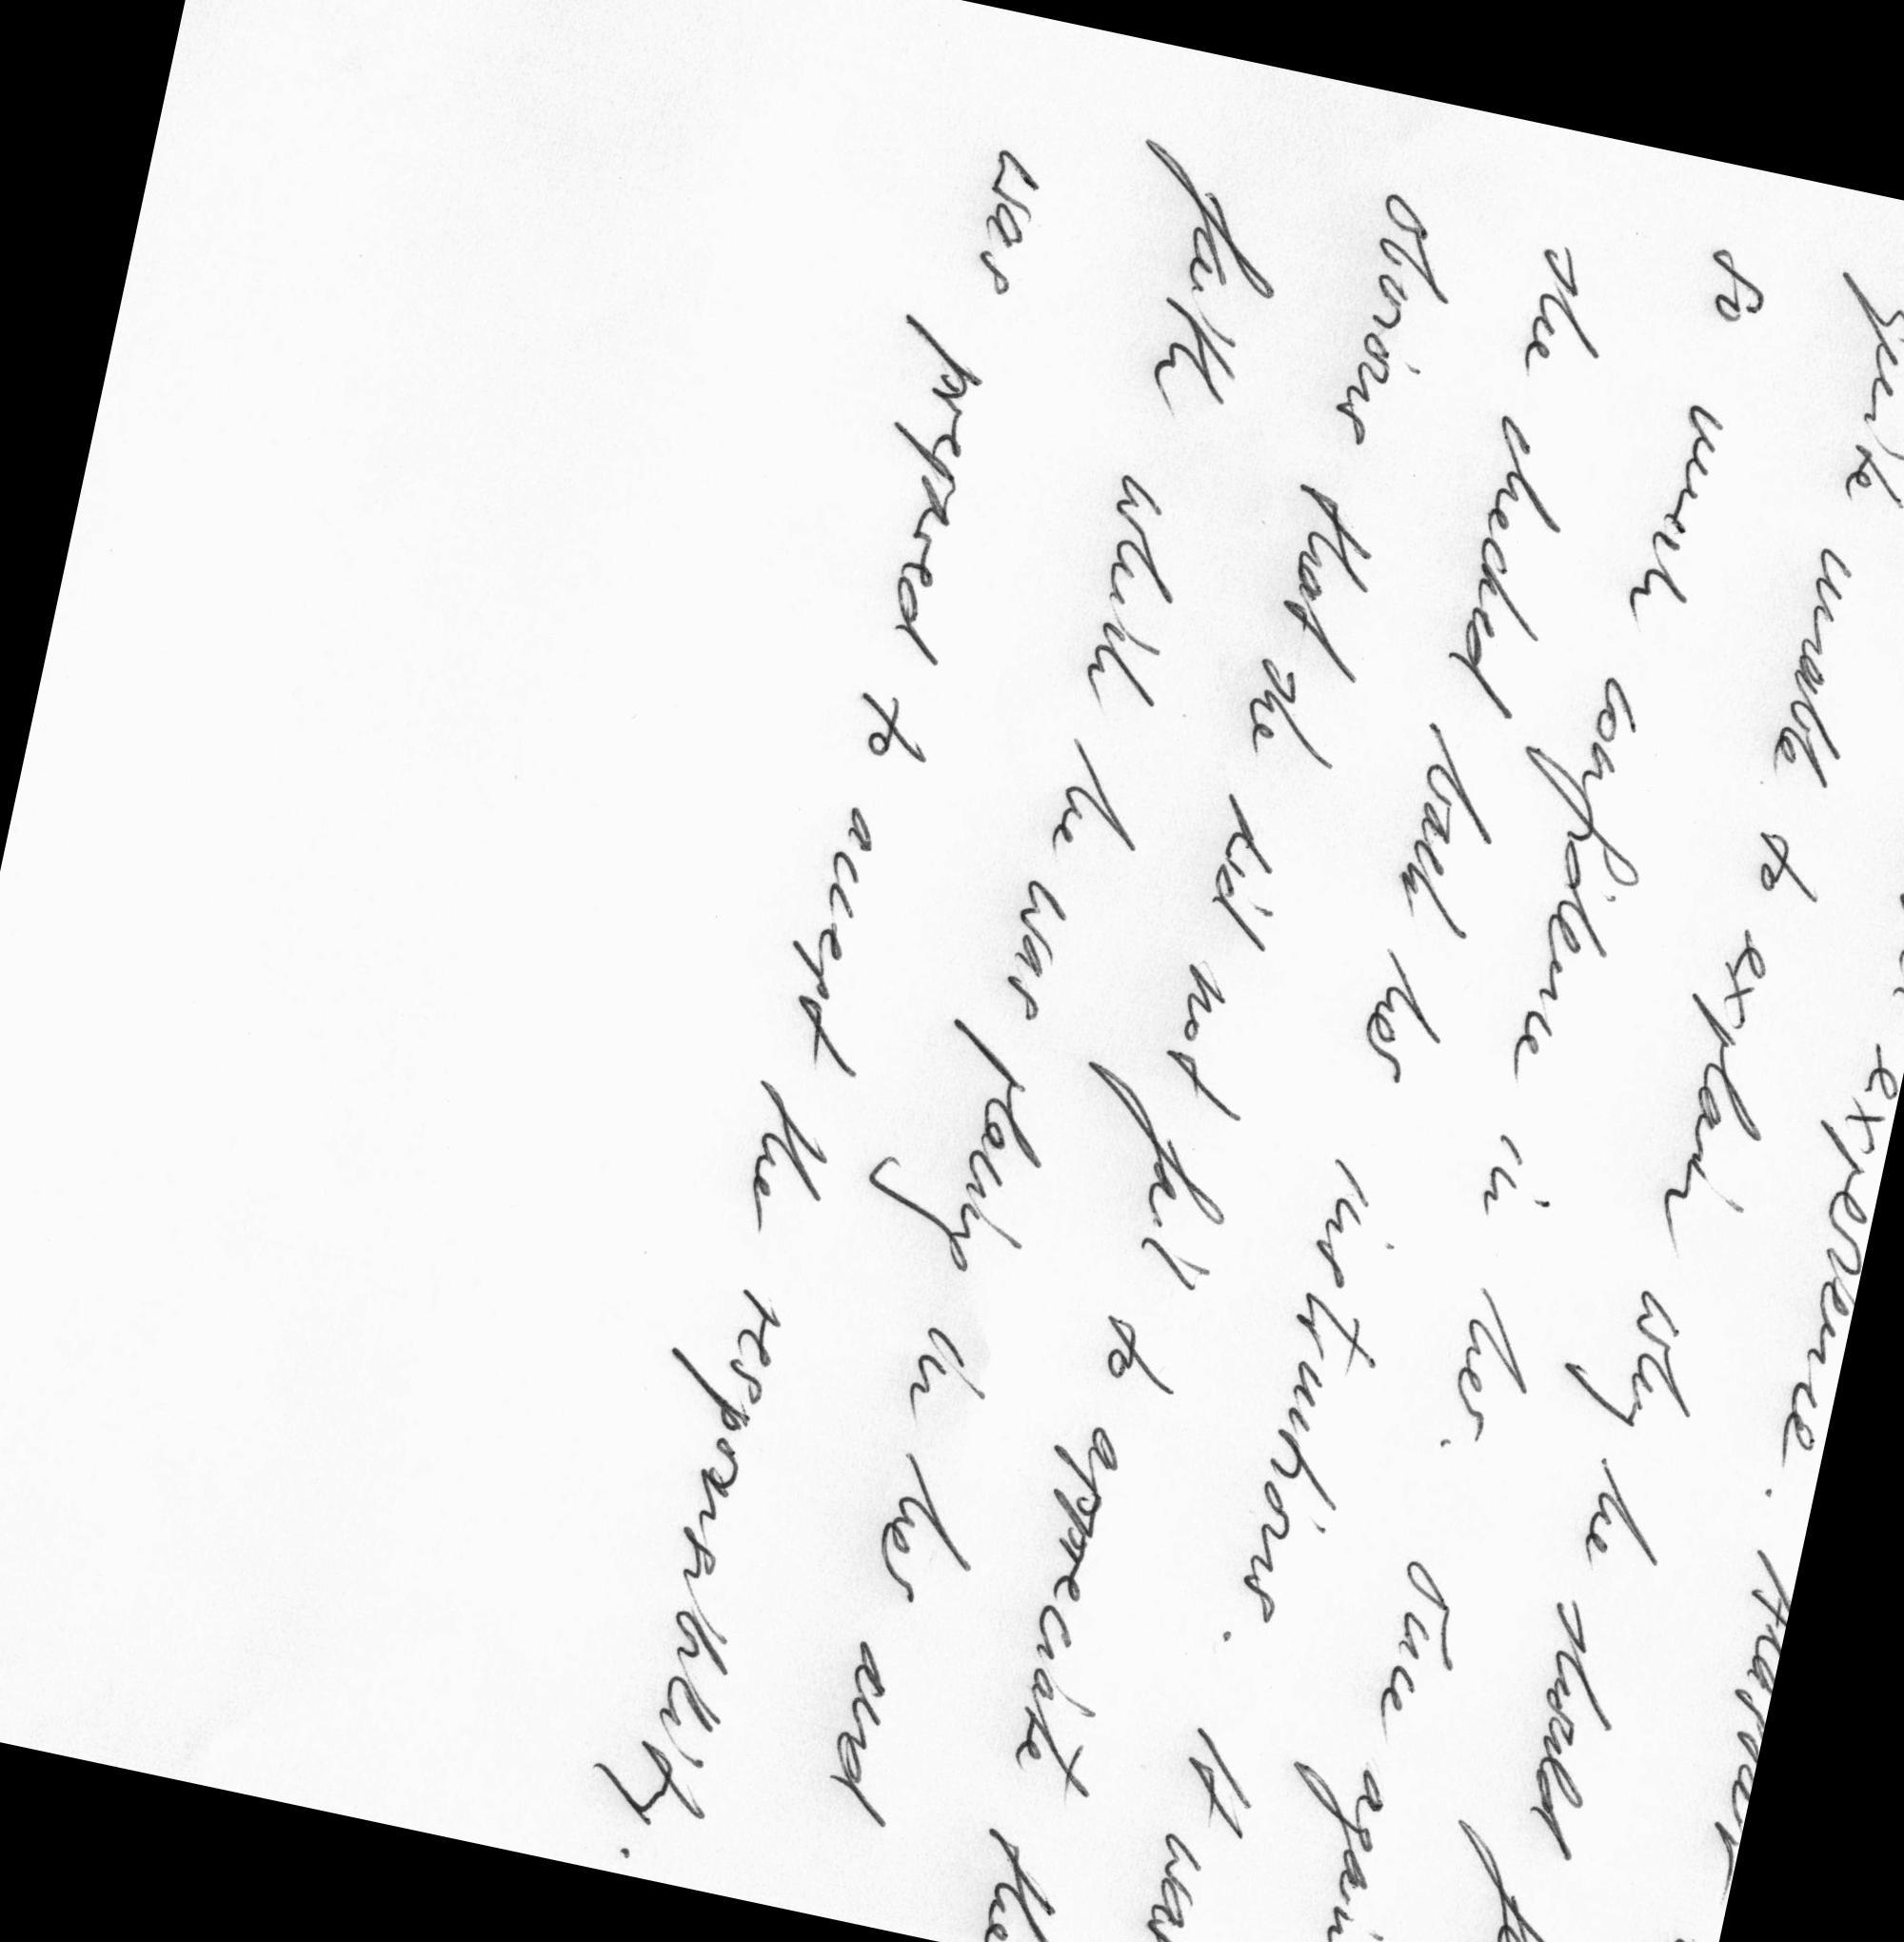 experience. Hansar
quite unable to explain why he should
so much confidence in her. Once again
she checked back her instructions. It was
obvious that she did not fail to appreciate the
faith which he was placing in her and
was prepared to accept the responsibility.